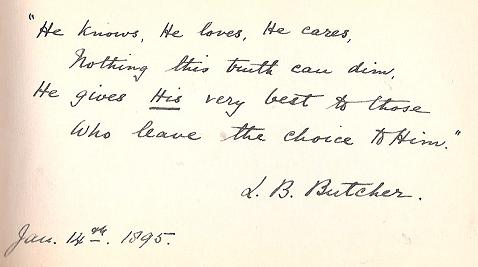 "He knows, He loves, He cares,
Nothing this truth can dim,
He gives His very best to those
Who leave the choice to Him."
L. B. Butcher.
Jan. 14th. 1895.